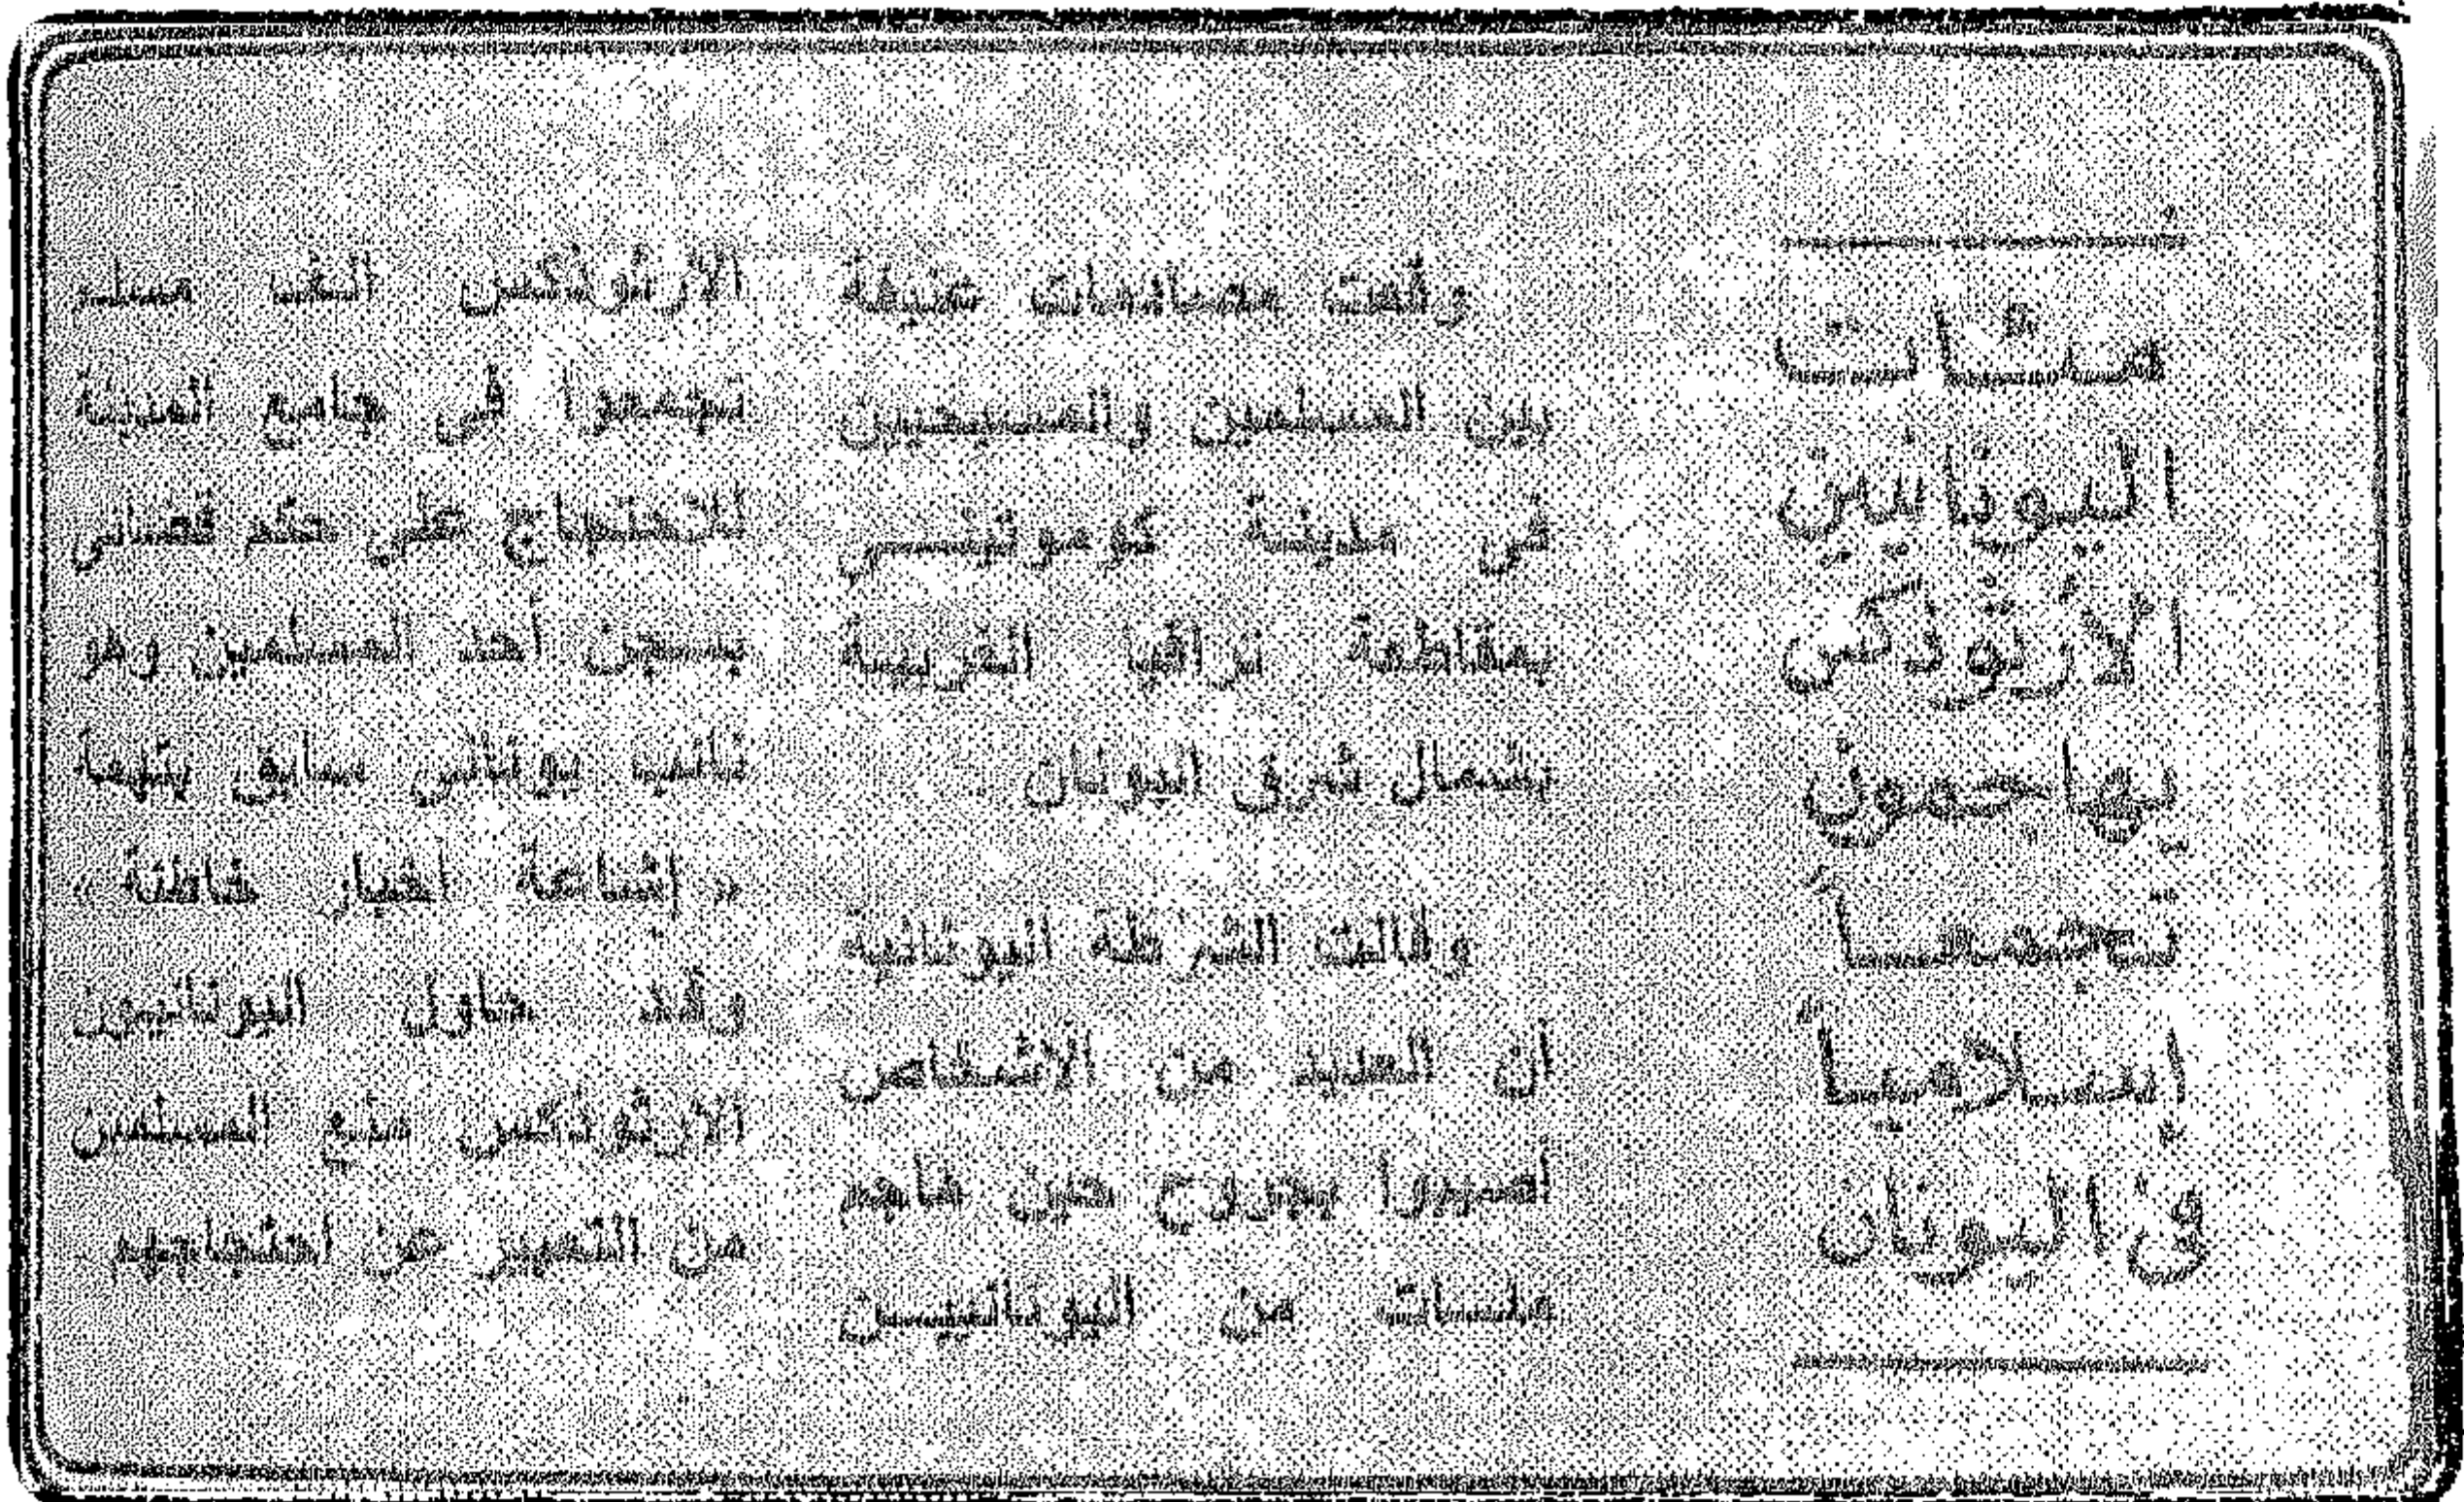 مئات
اليونانيين
الأرثوذكس
يهاجمون
تجمعاً
إسلامياً
في اليونان
وقعت مصادمات عنيفة
بين المسلمين والمسيحيين
في مدينة كوموتيني
بمقاطعة تراقيا الغربية
بشمال شرق اليونان
وقالت الشرطة اليونانية
أن العديد من الأشخاص
أصيبوا بجروح حين هاجم
مئات من اليونانيين
الأرثوذكس ألف مسلم
تجمعوا في جامع المدينة
للاحتجاج على حكم قضائي
بسجن أحد المسلمين وهو
نائب يوناني سابق بتهمة
« إشاعة أخبار خاطئة »
وقد حاول اليونانيون
الأرثوذكس منع المسلمين
من التعبير عن احتجاجهم